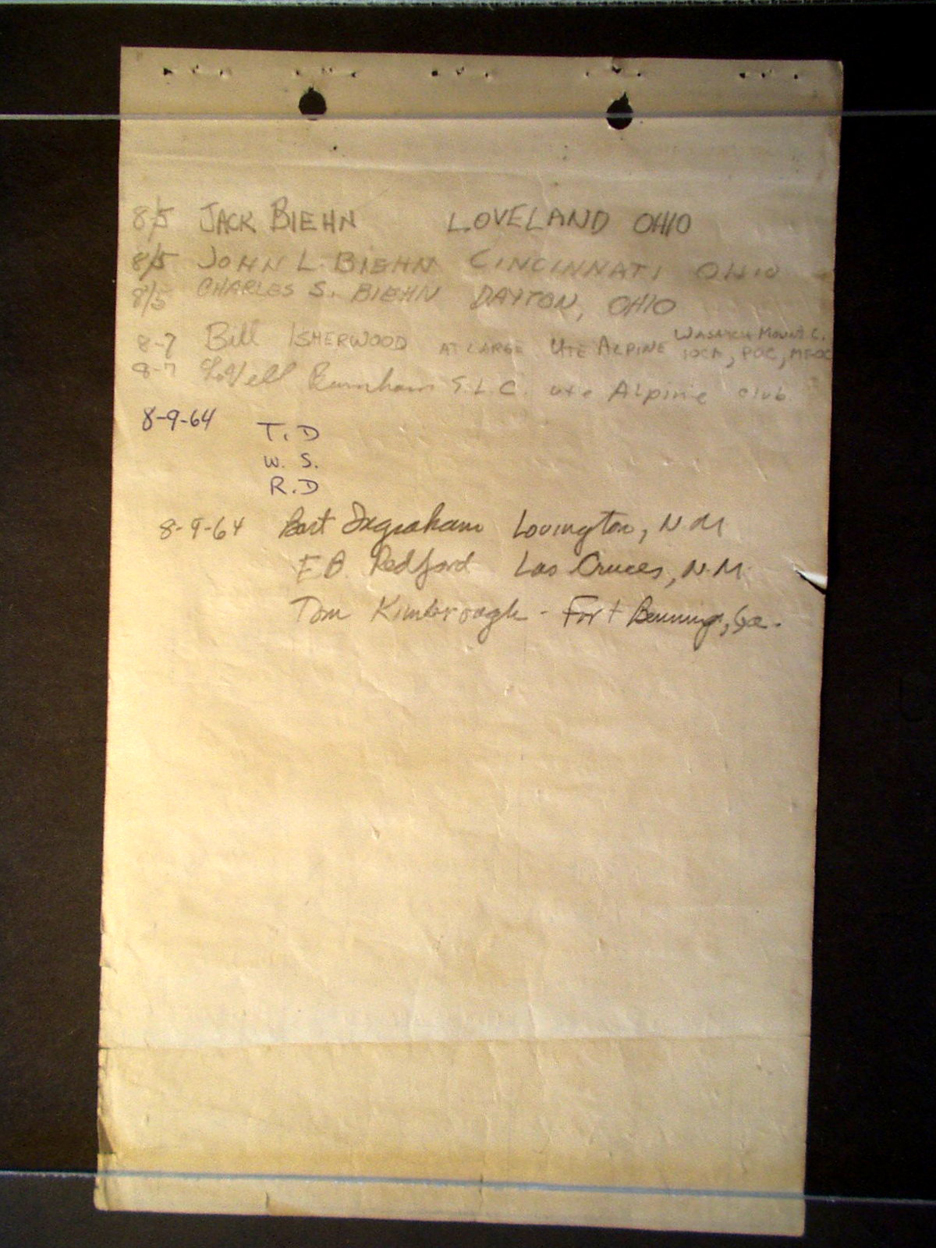 8/5 JACK BIEHN LOVELAND OHIO
8/5 JOHN L. BIEHN CINCINNATI OHIO
8/5 CHARLES S. BIEHN DAYTON, OHIO
8-7 Bill ISHERWOOD AT LARGE UTE ALPINE WASATCH MOUNT. C. IOCA, POC,
8-7 Lowell Burnham S.L.C. Ute Alpine Club
8-9-64 T.D
W. S.
R.D
8-9-64 Bart Ingraham Lovington, N M
E B Redford Las Cruces, N.M.
Tom Kimbrough - Fort Benning, Ga.